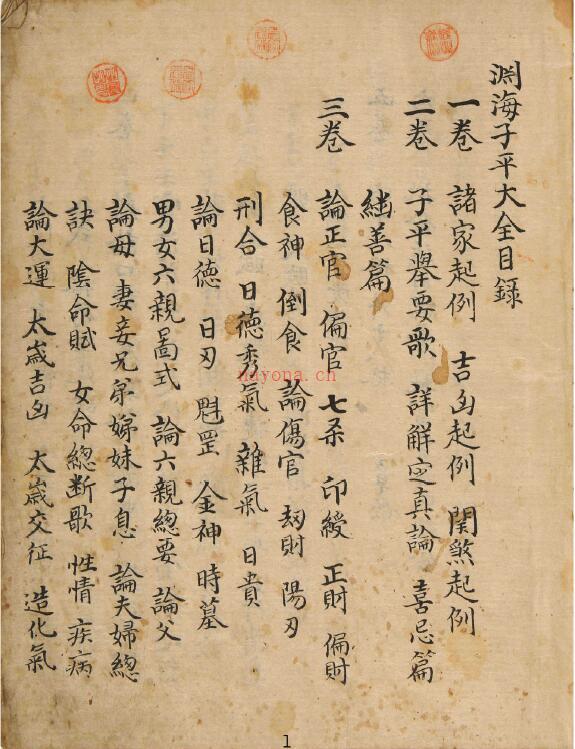 淵海子平大全目録
一卷 諸家起例 吉凶起例 関煞起例
二卷 子平舉要歌 詳解定真論 喜忌篇
繼善篇
三卷 論正官 偏官 七杀 印綬 正財 偏財
食神 倒食 論傷官 刼財 陽刃
刑合 日德秀氣 雜氣 日貴
論日德 日刃 魁罡 金神 時墓
男女六親啚式 論六親總要 論父
論母 妻妾兄弟娣妹子息 論夫婦總
訣 陰命賦 女命總断歌 性情 疾病
論大運 太歲吉凶 太歲交征 造化氣
nayona.cn
1